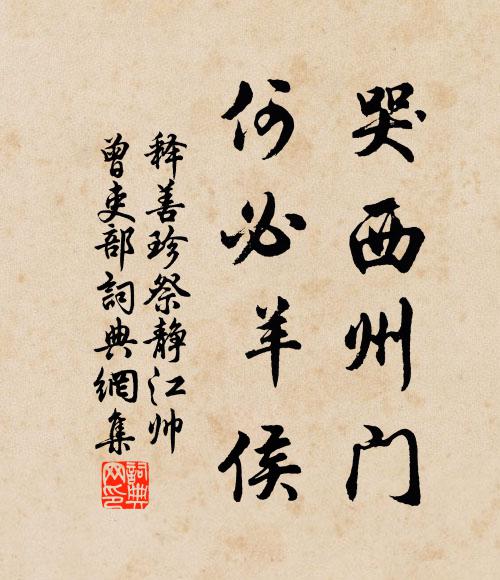 哭西州门
何必羊侯
释善珍祭静江帅
曾吏部词典網集
詞典網印